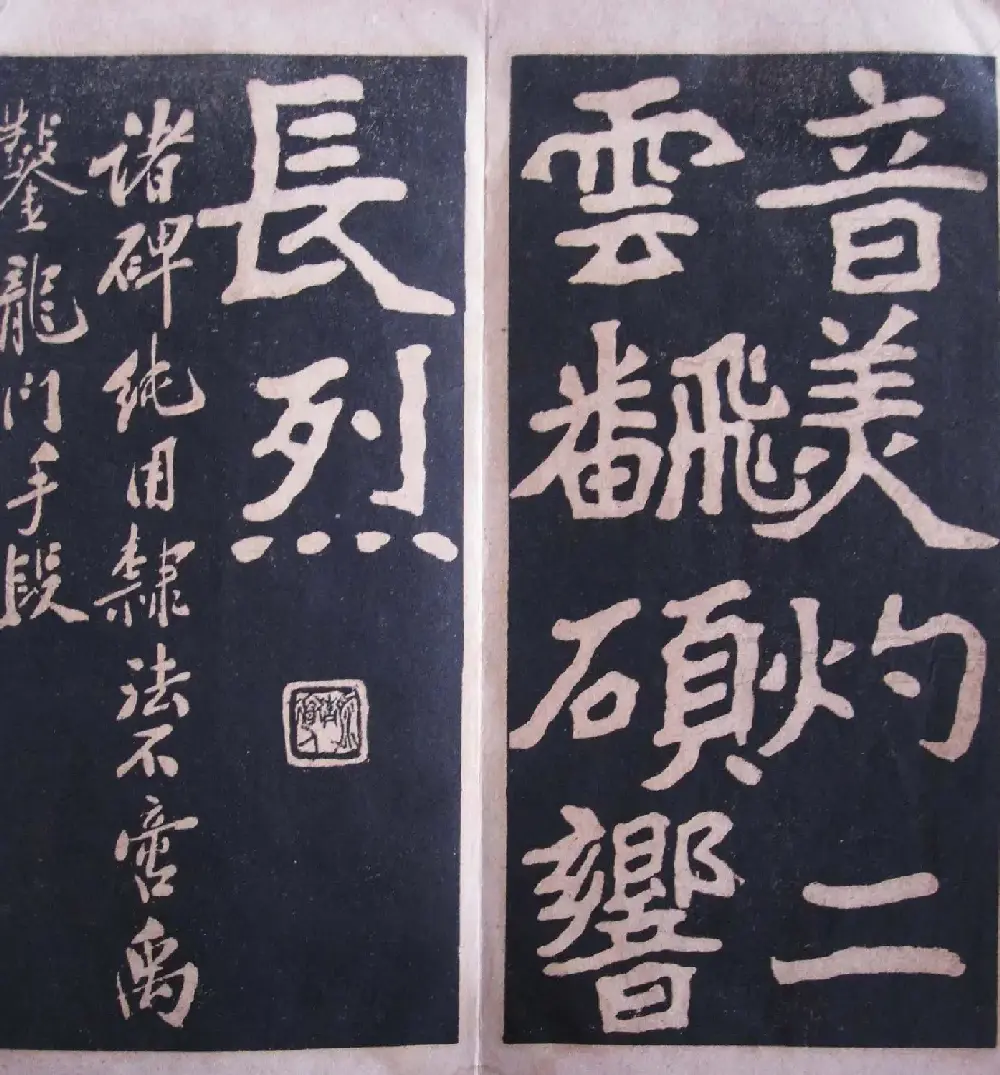 音美灼二
雲飜碩響
長烈
諸碑純用隸法不啻禹
鑿龍門手段